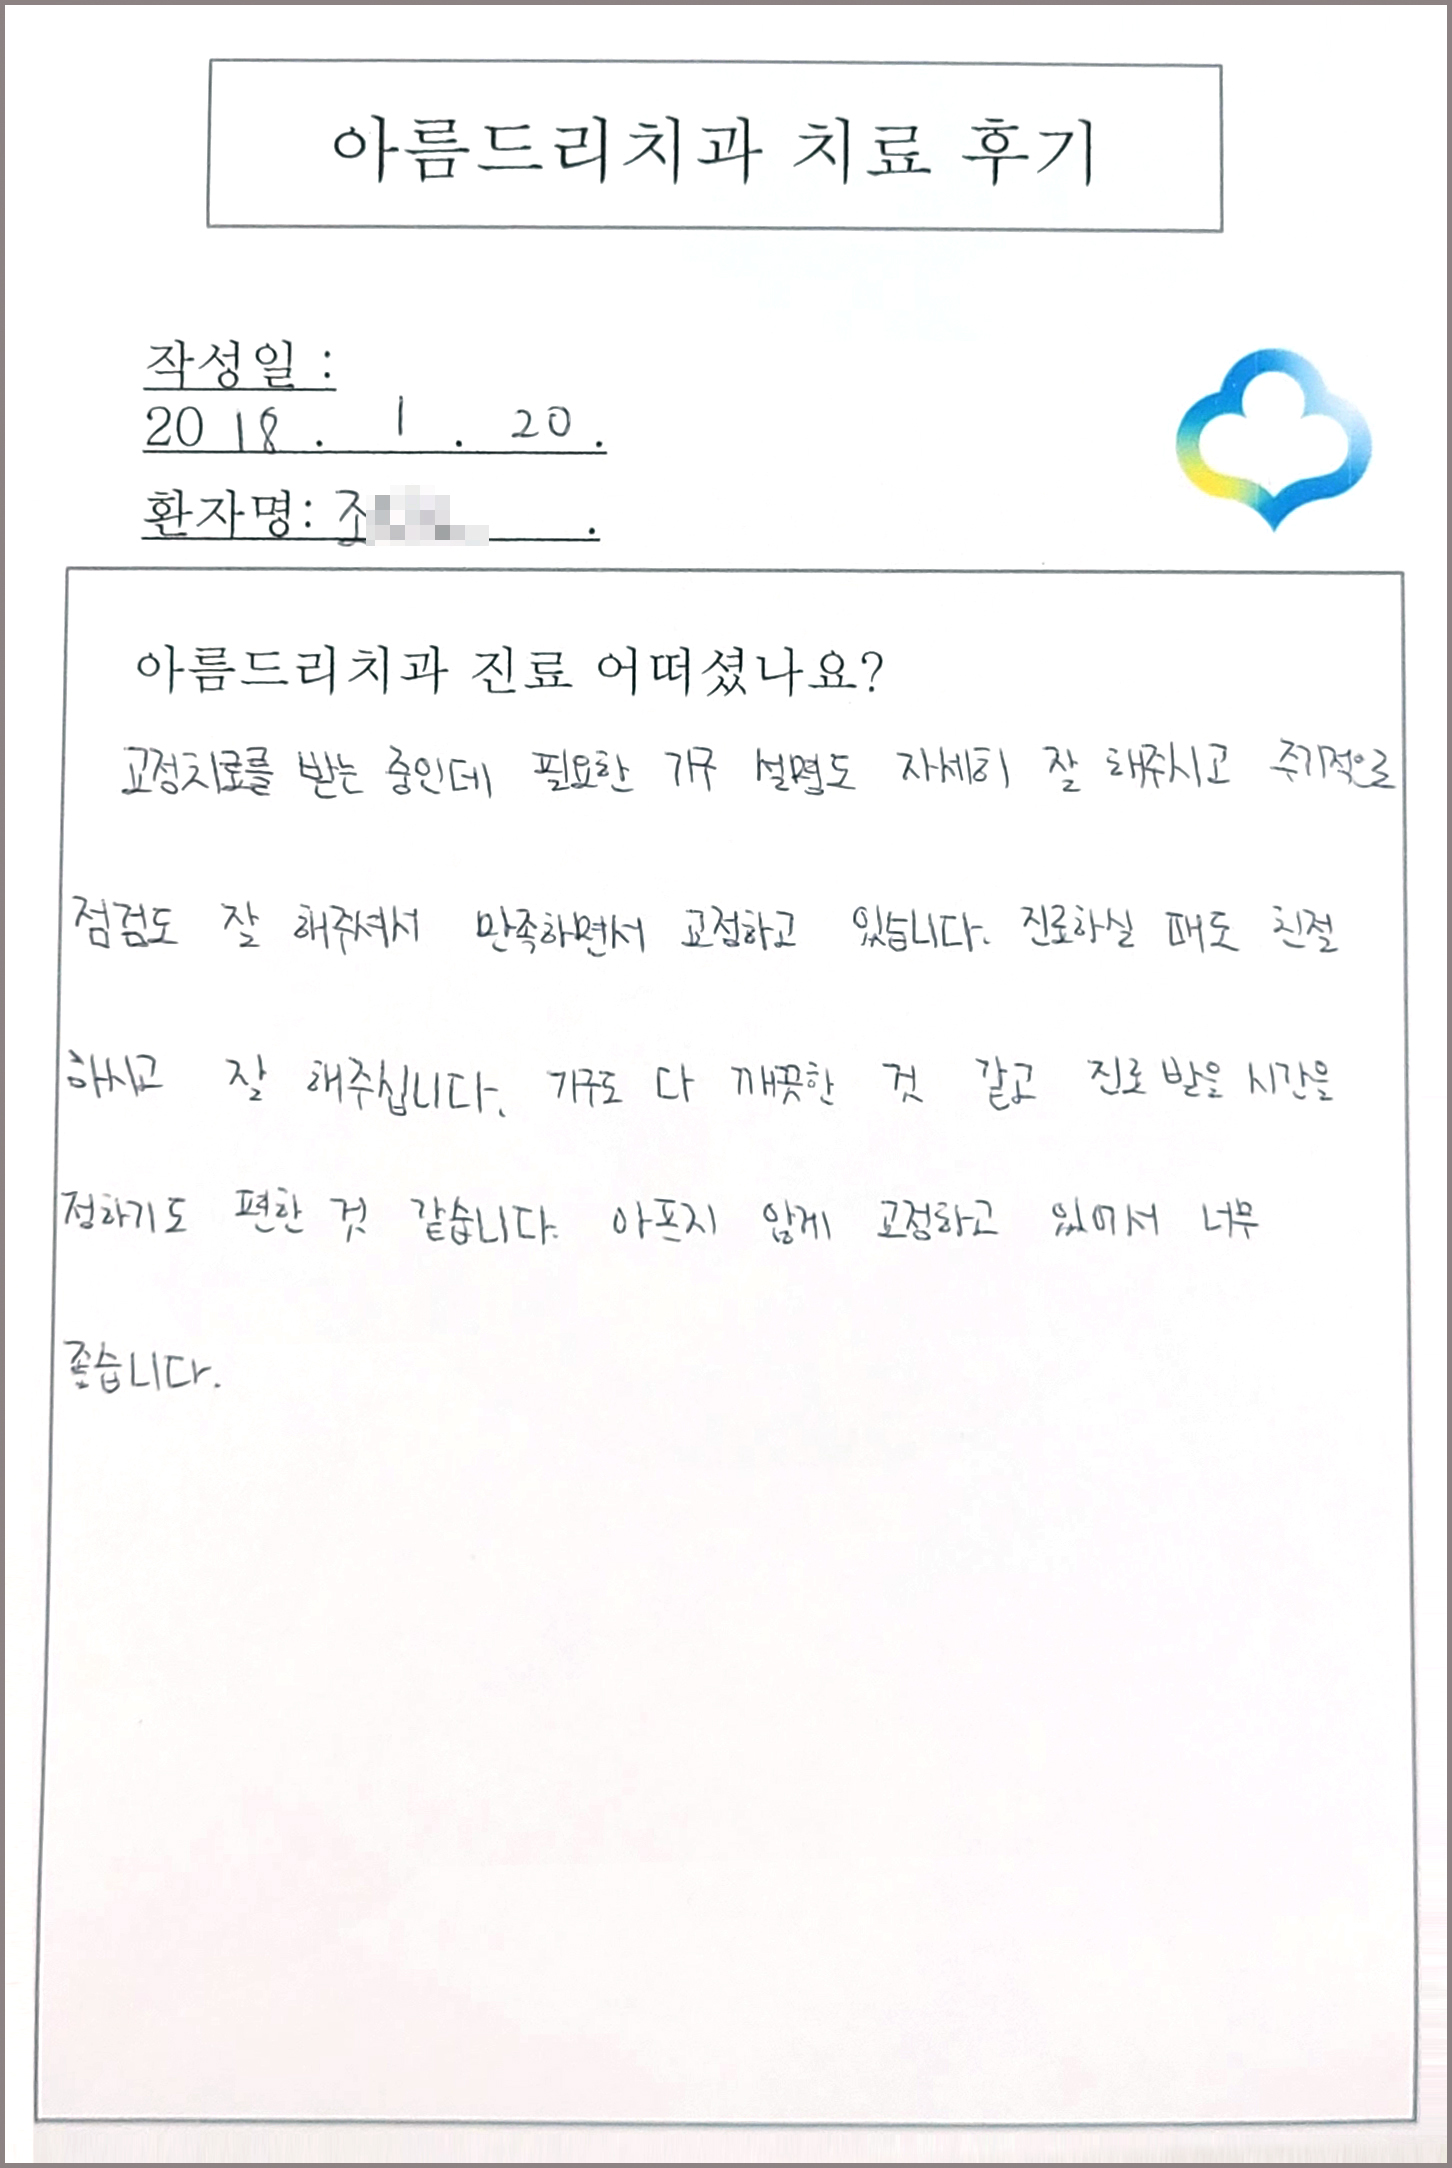 아름드리치과 치료 후기
작성일 :
2018. 1. 20.
환자명: 조 .
아름드리치과 진료 어떠셨나요?
교정치료를 받는 중인데 필요한 기구 설명도 자세히 잘 해주시고 주기적으로
점검도 잘 해주셔서 만족하면서 교정하고 있습니다. 진료하실 때도 친절
하시고 잘 해주십니다. 기구도 다 깨끗한 것 같고 진료 받을 시간을
정하기도 편한 것 같습니다. 아프지 않게 교정하고 있어서 너무
좋습니다.